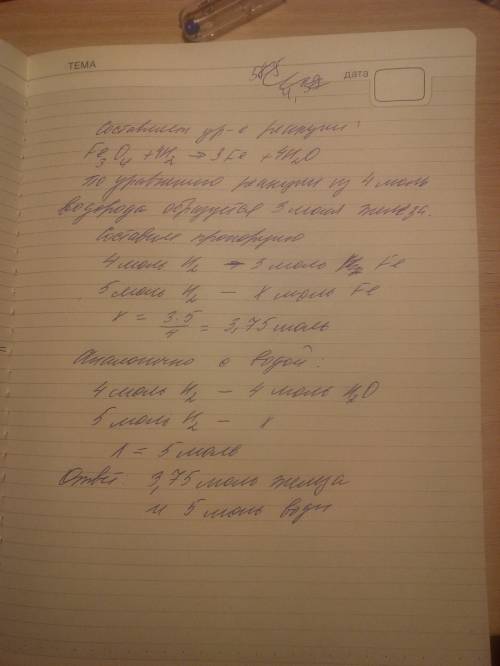 ТЕМА
дата
Составляем ур-е реакции:
Fe3O4 + 4H2 → 3Fe + 4H2O
По уравнению реакции из 4 моль
водорода образуется 3 моля железа.
Составим пропорцию
4 моль H2 – 3 моль Fe
5 моль H2 – x моль Fe
x = 3·5/4 = 3,75 моль
Аналогично с водой:
4 моль H2 – 4 моль H2O
5 моль H2 – x
x = 5 моль
Ответ 3,75 моль железа
и 5 моль воды